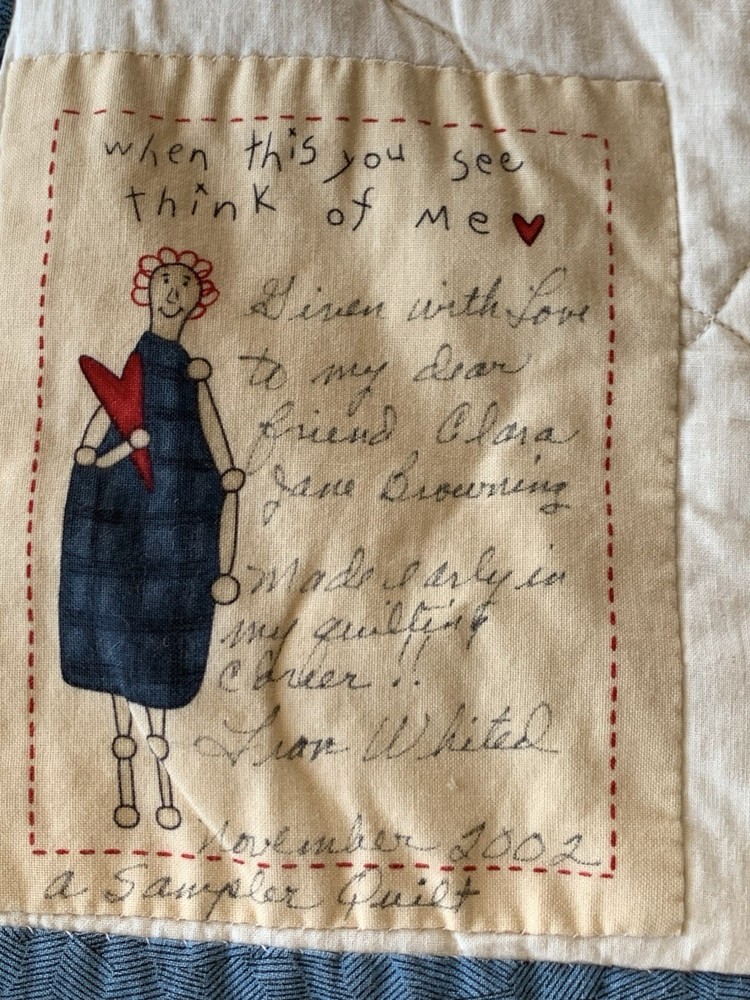 when this you see
think of me
Given with Love
to my dear
friend Clara
Jane Browning
Made early in
my quilting
career !!
Whited
November 2002
a Sampler Quilt